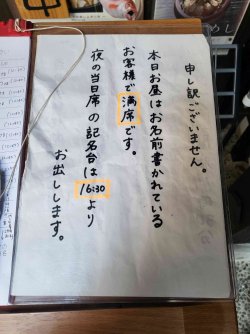 申し訳ございません。
本日お昼はお名前書かれている
お客様で満席です。
夜の当日席の記名台は
16:30より
お出しします。